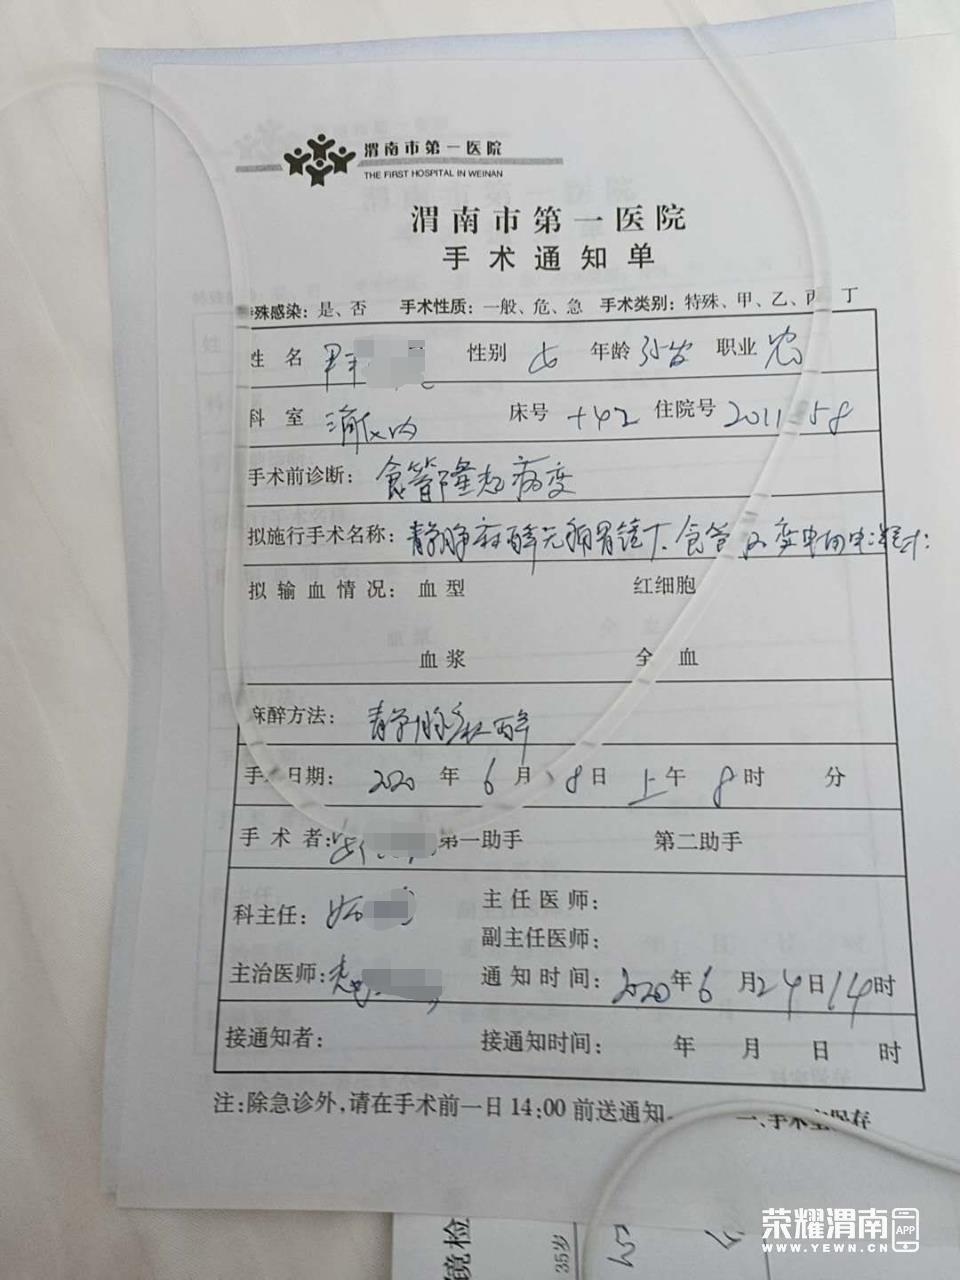 渭南市第一医院
THE FIRST HOSPITAL IN WEINAN
渭南市第一医院
手术通知单
殊感染：是、否 手术性质：一般、危、急 手术类别：特殊、甲、乙、丙、丁
姓名 性别 女 年龄 35岁 职业 农
科室 消化内 床号 +42 住院号
手术前诊断：食管隆起病变
拟施行手术名称：静脉麻醉无痛胃镜下食管病变电切电凝术
拟输血情况：血型 红细胞
血浆 全血
麻醉方法：静脉麻醉
手 日期：2020年6月 8日 上午8时 分
手术者： 第一助手 第二助手
科主任： 主任医师：
副主任医师：
主治医师： 通知时间：2020年6月24日14时
接通知者： 接通知时间： 年 月 日 时
注：除急诊外，请在手术前一日14:00前送通知 手术室保存
镜检
35岁
荣耀渭南 APP
WWW.YEWN.CN